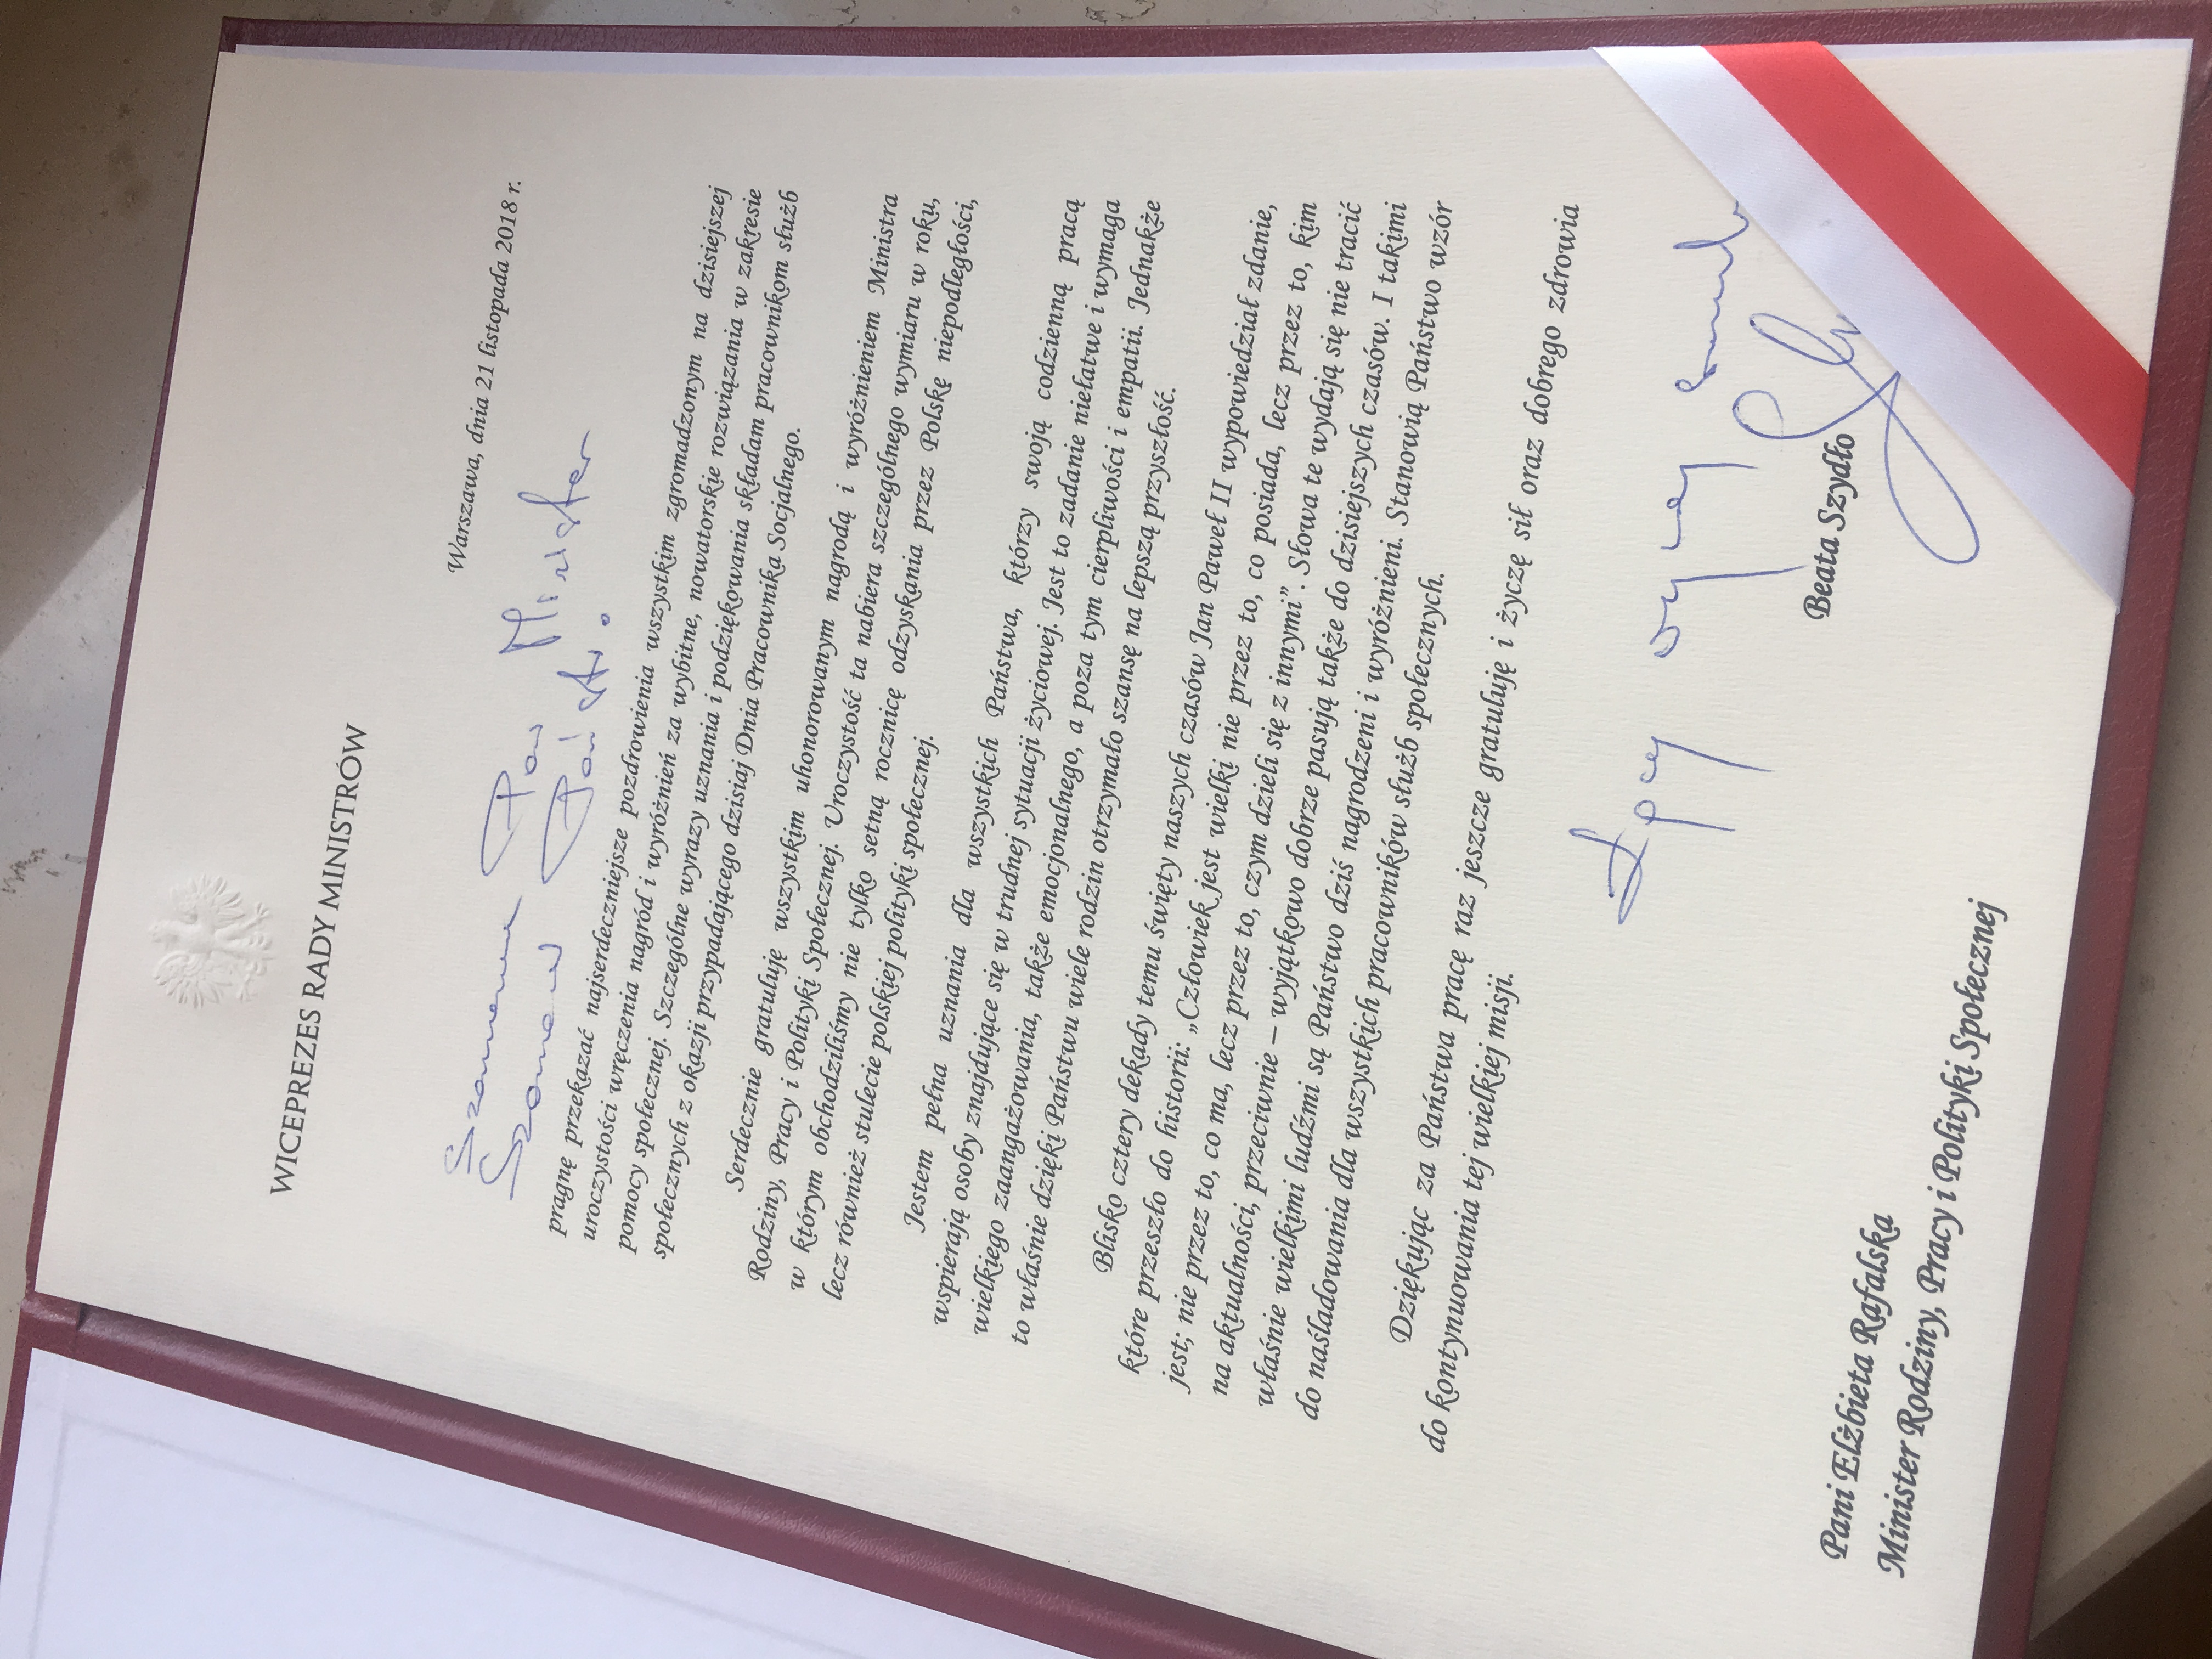 WICEPREZES RADY MINISTRÓW
Warszawa, dnia 21 listopada 2018 r.
Szanowna Pani Minister
Szanowni Państwo
pragnę przekazać najserdeczniejsze pozdrowienia wszystkim zgromadzonym na dzisiejszej
uroczystości wręczenia nagród i wyróżnień za wybitne, nowatorskie rozwiązania w zakresie
pomocy społecznej. Szczególne wyrazy uznania i podziękowania składam pracownikom służb
społecznych z okazji przypadającego dzisiaj Dnia Pracownika Socjalnego.
Serdecznie gratuluję wszystkim uhonorowanym nagrodą i wyróżnieniem Ministra
Rodziny, Pracy i Polityki Społecznej. Uroczystość ta nabiera szczególnego wymiaru w roku,
w którym obchodziliśmy nie tylko setną rocznicę odzyskania przez Polskę niepodległości,
lecz również stulecie polskiej polityki społecznej.
Jestem pełna uznania dla wszystkich Państwa, którzy swoją codzienną pracą
wspierają osoby znajdujące się w trudnej sytuacji życiowej. Jest to zadanie niełatwe i wymaga
wielkiego zaangażowania, także emocjonalnego, a poza tym cierpliwości i empatii. Jednakże
to właśnie dzięki Państwu wiele rodzin otrzymało szansę na lepszą przyszłość.
Blisko cztery dekady temu święty naszych czasów Jan Paweł II wypowiedział zdanie,
które przeszło do historii: „Człowiek jest wielki nie przez to, co posiada, lecz przez to, kim
jest; nie przez to, co ma, lecz przez to, czym dzieli się z innymi”. Słowa te wydają się nie tracić
na aktualności, przeciwnie – wyjątkowo dobrze pasują także do dzisiejszych czasów. I takimi
właśnie wielkimi ludźmi są Państwo dziś nagrodzeni i wyróżnieni. Stanowią Państwo wzór
do naśladowania dla wszystkich pracowników służb społecznych.
Dziękując za Państwa pracę raz jeszcze gratuluję i życzę sił oraz dobrego zdrowia
do kontynuowania tej wielkiej misji.
Beata Szydło
Pani Elżbieta Rafalska
Minister Rodziny, Pracy i Polityki Społecznej